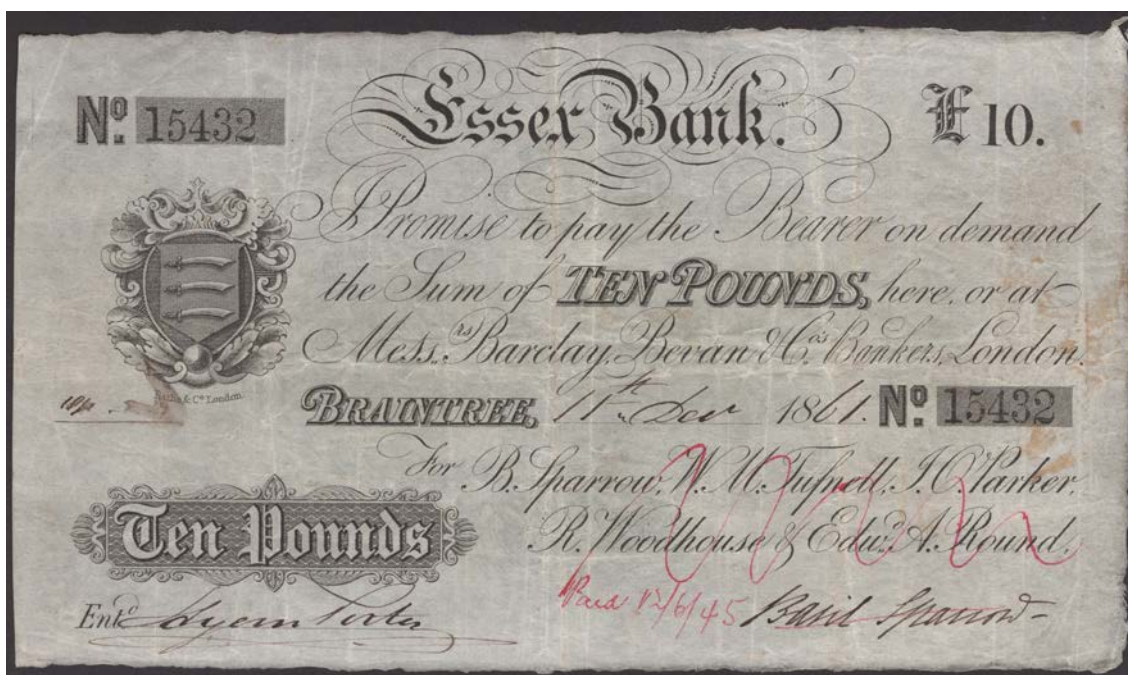 Nº. 15432
Essex Bank.
£10.
I Promise to pay the Bearer on demand
the Sum of TEN POUNDS, here, or at
Mess.rs Barclay, Bevan & Co.s Bankers, London.
& Co London
BRAINTREE, 11th Decr 1861. Nº. 15432
For B. Sparrow, W. M. Tufnell, J. O. Parker,
R. Woodhouse & Edwd. A. Round.
Ten Pounds
Paid 12/6/45
Basil Sparrow
Entd